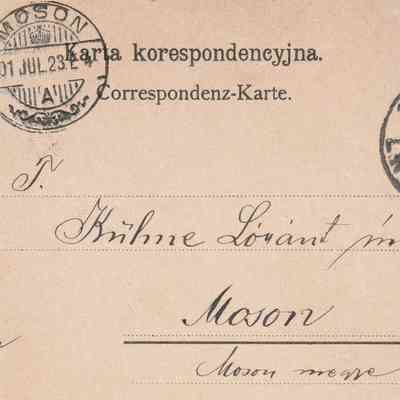 MOSON
01 JUL. 23.
A
Karta korespondencyjna.
Correspondenz-Karte.
T.
Kühne Lóránt
Moson
Moson megye